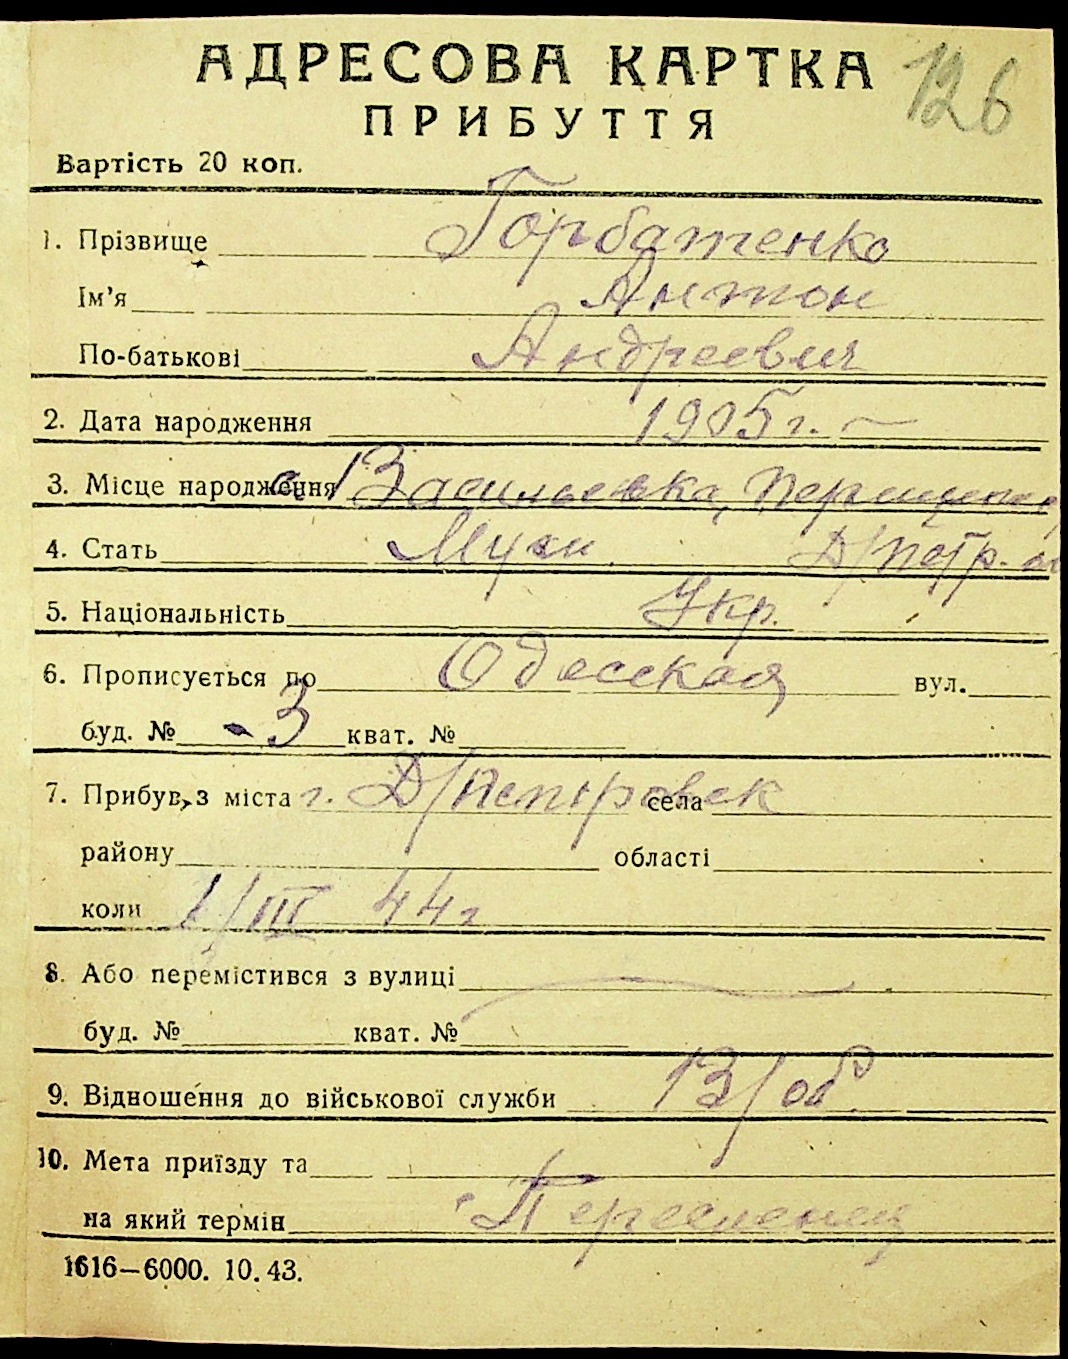 126
АДРЕСОВА КАРТКА
ПРИБУТТЯ
Вартість 20 коп.
1. Прізвище Горбатенко
Ім'я Антон
По-батькові Андреевич
2. Дата народження 1905 г.
3. Місце народження с. Васильевка,
4. Стать Муж. Д/Петр.
5. Національність Укр.
6. Прописується по Одесская вул.
буд. № 3 кват. №
7. Прибув з міста г. Д/Петровск села
району області
коли 1/III 44 г
8. Або перемістився з вулиці
буд. № кват. №
9. Відношення до військової служби В/об
10. Мета приїзду та
на який термін Переселенец
1616—6000. 10.43.